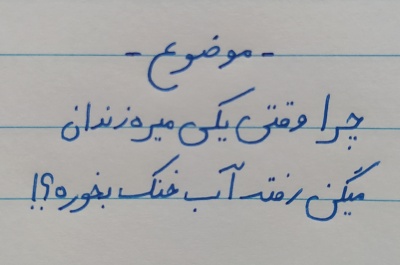 - موضوع -
چرا وقتی یکی میره زندان
میگن رفته آب خنک بخوره؟!